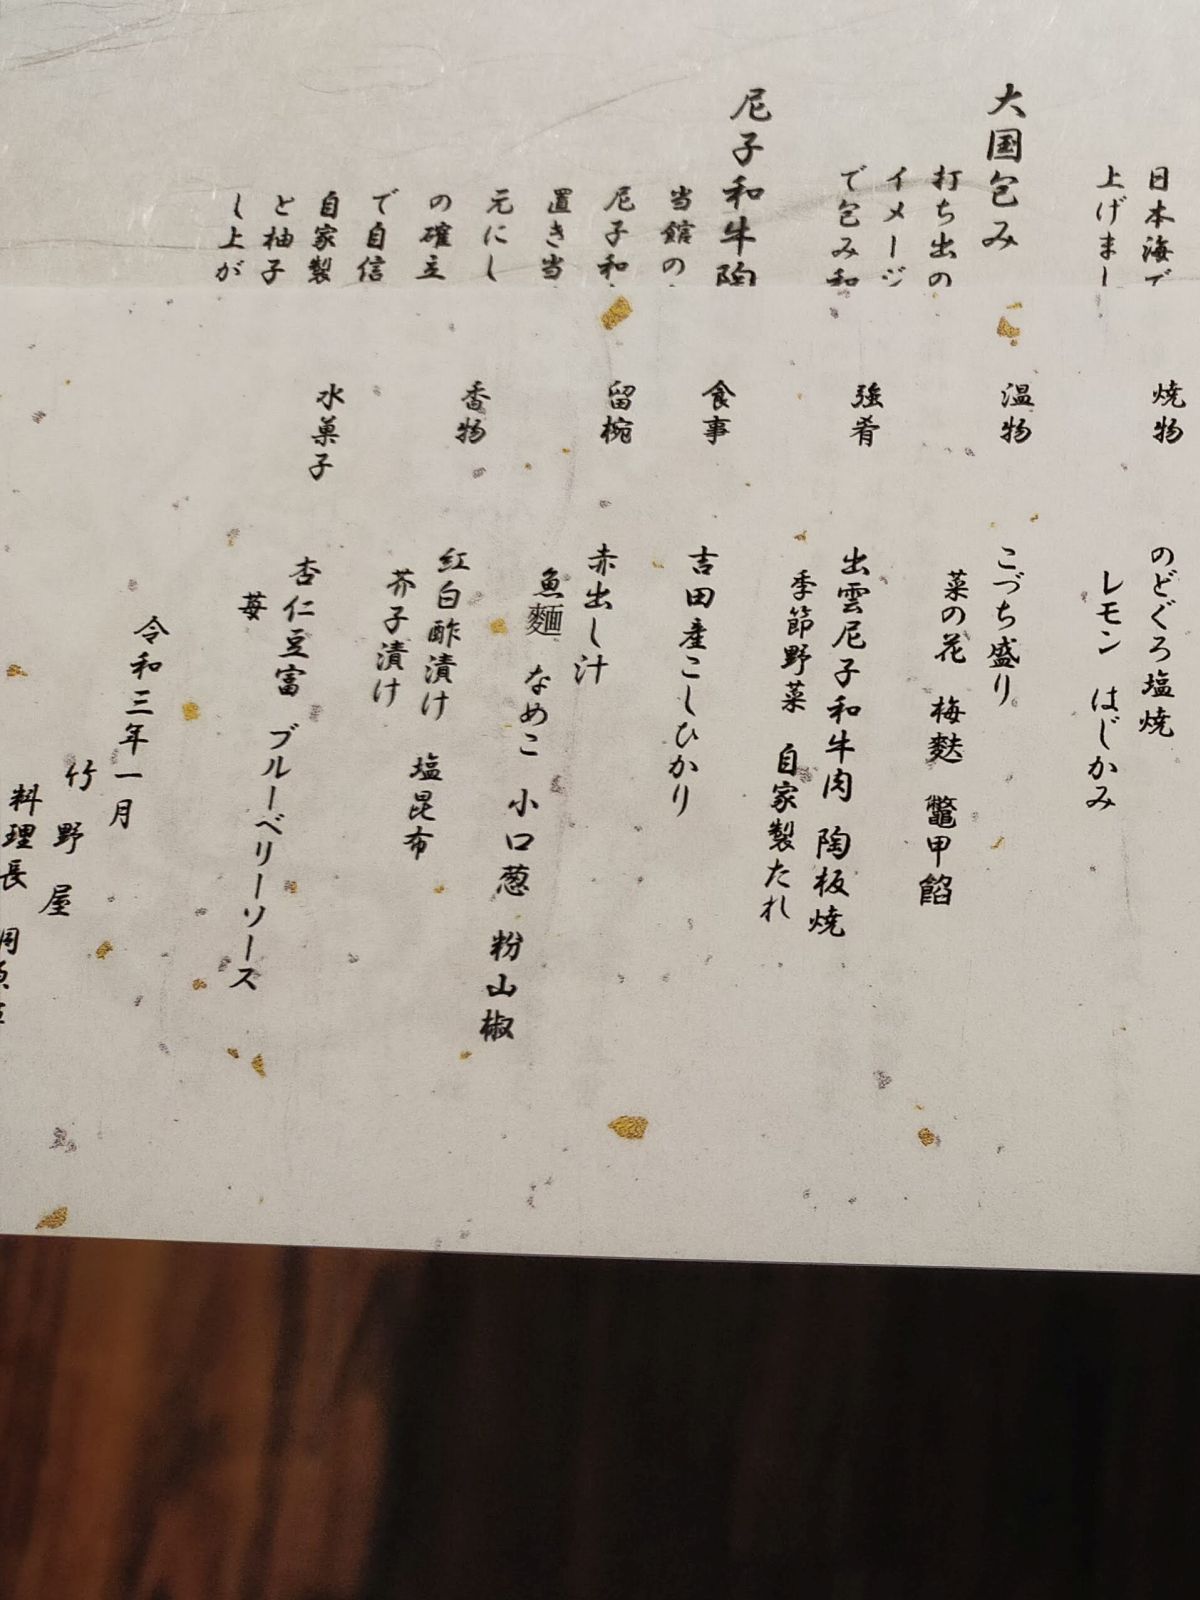 日本海で
上げまし
大国包み
打ち出の
イメージ
で包み和
尼子和牛陶
当館の
尼子和
置き当
元にし
の確立
で自信
自家製
と柚子
し上が
焼物
のどぐろ塩焼
レモン はじかみ
温物
こづち盛り
菜の花 梅麩 鼈甲餡
強肴
出雲尼子和牛肉 陶板焼
季節野菜 自家製たれ
食事
吉田産こしひかり
留椀
赤出し汁
魚麺 なめこ 小口葱 粉山椒
香物
紅白酢漬け 塩昆布
芥子漬け
水菓子
杏仁豆富 ブルーベリーソース
苺
令和三年一月
竹野屋
料理長